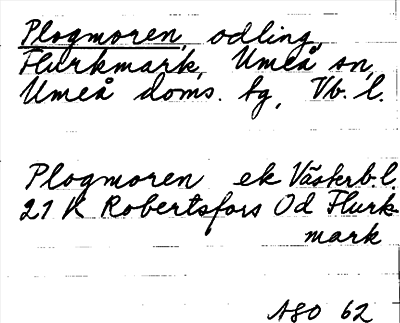 Plogmoren, odling,
Flurkmark, Umeå sn,
Umeå doms. tg, Vb. l.
Plogmoren ek Västerb.l.
21 K Robertsfors Od Flurk
mark
ASO 62